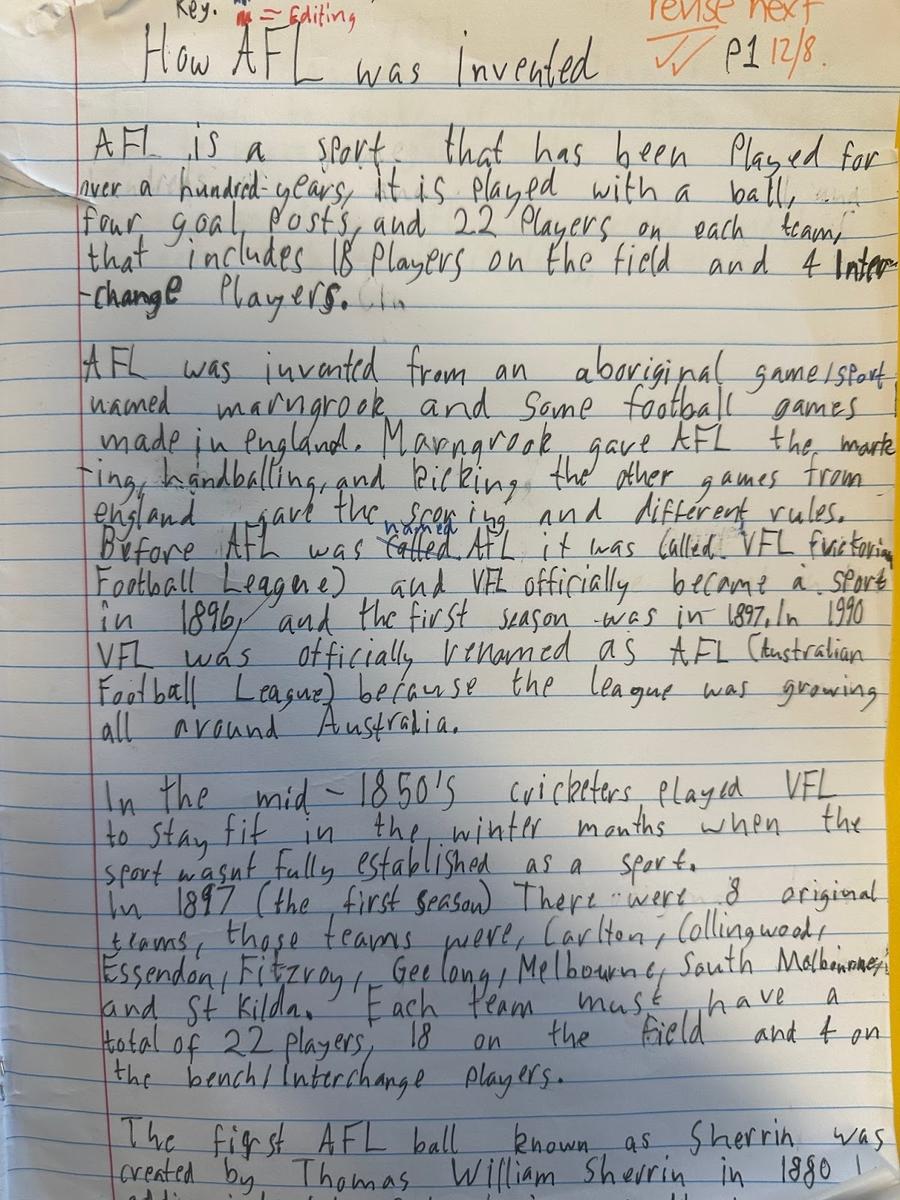 Key. = Editing
revise next
How AFL was invented P1 12/8.
AFL is a sport that has been Played for
over a hundred-years, it is played with a ball,
four goal Posts, and 22 Players on each team,
that includes 18 Players on the field and 4 Inter-
-change Players.
AFL was invented from an aboriginal game/sport
named marngrook and some football games
made in england. Marngrook gave AFL the mark
-ing, handballing, and kicking, the other games from
england gave the scoring and different rules.
named
Before AFL was called AFL it was called VFL (victorian
Football League) and VFL officially became a sport
in 1896, and the first season was in 1897, In 1990
VFL was officially renamed as AFL (Australian
Football League) because the league was growing
all around Australia.
In the mid-1850's cricketers played VFL
to stay fit in the winter months when the
sport wasnt fully established as a sport.
In 1897 (the first season) There were 8 original
teams, those teams were, Carlton, Collingwood,
Essendon, Fitzroy, Geelong, Melbourne, South Melbourne,
and St Kilda. Each team must have a
total of 22 players, 18 on the field and 4 on
the bench/Interchange players.
The first AFL ball known as Sherrin was
created by Thomas William Sherrin in 1880